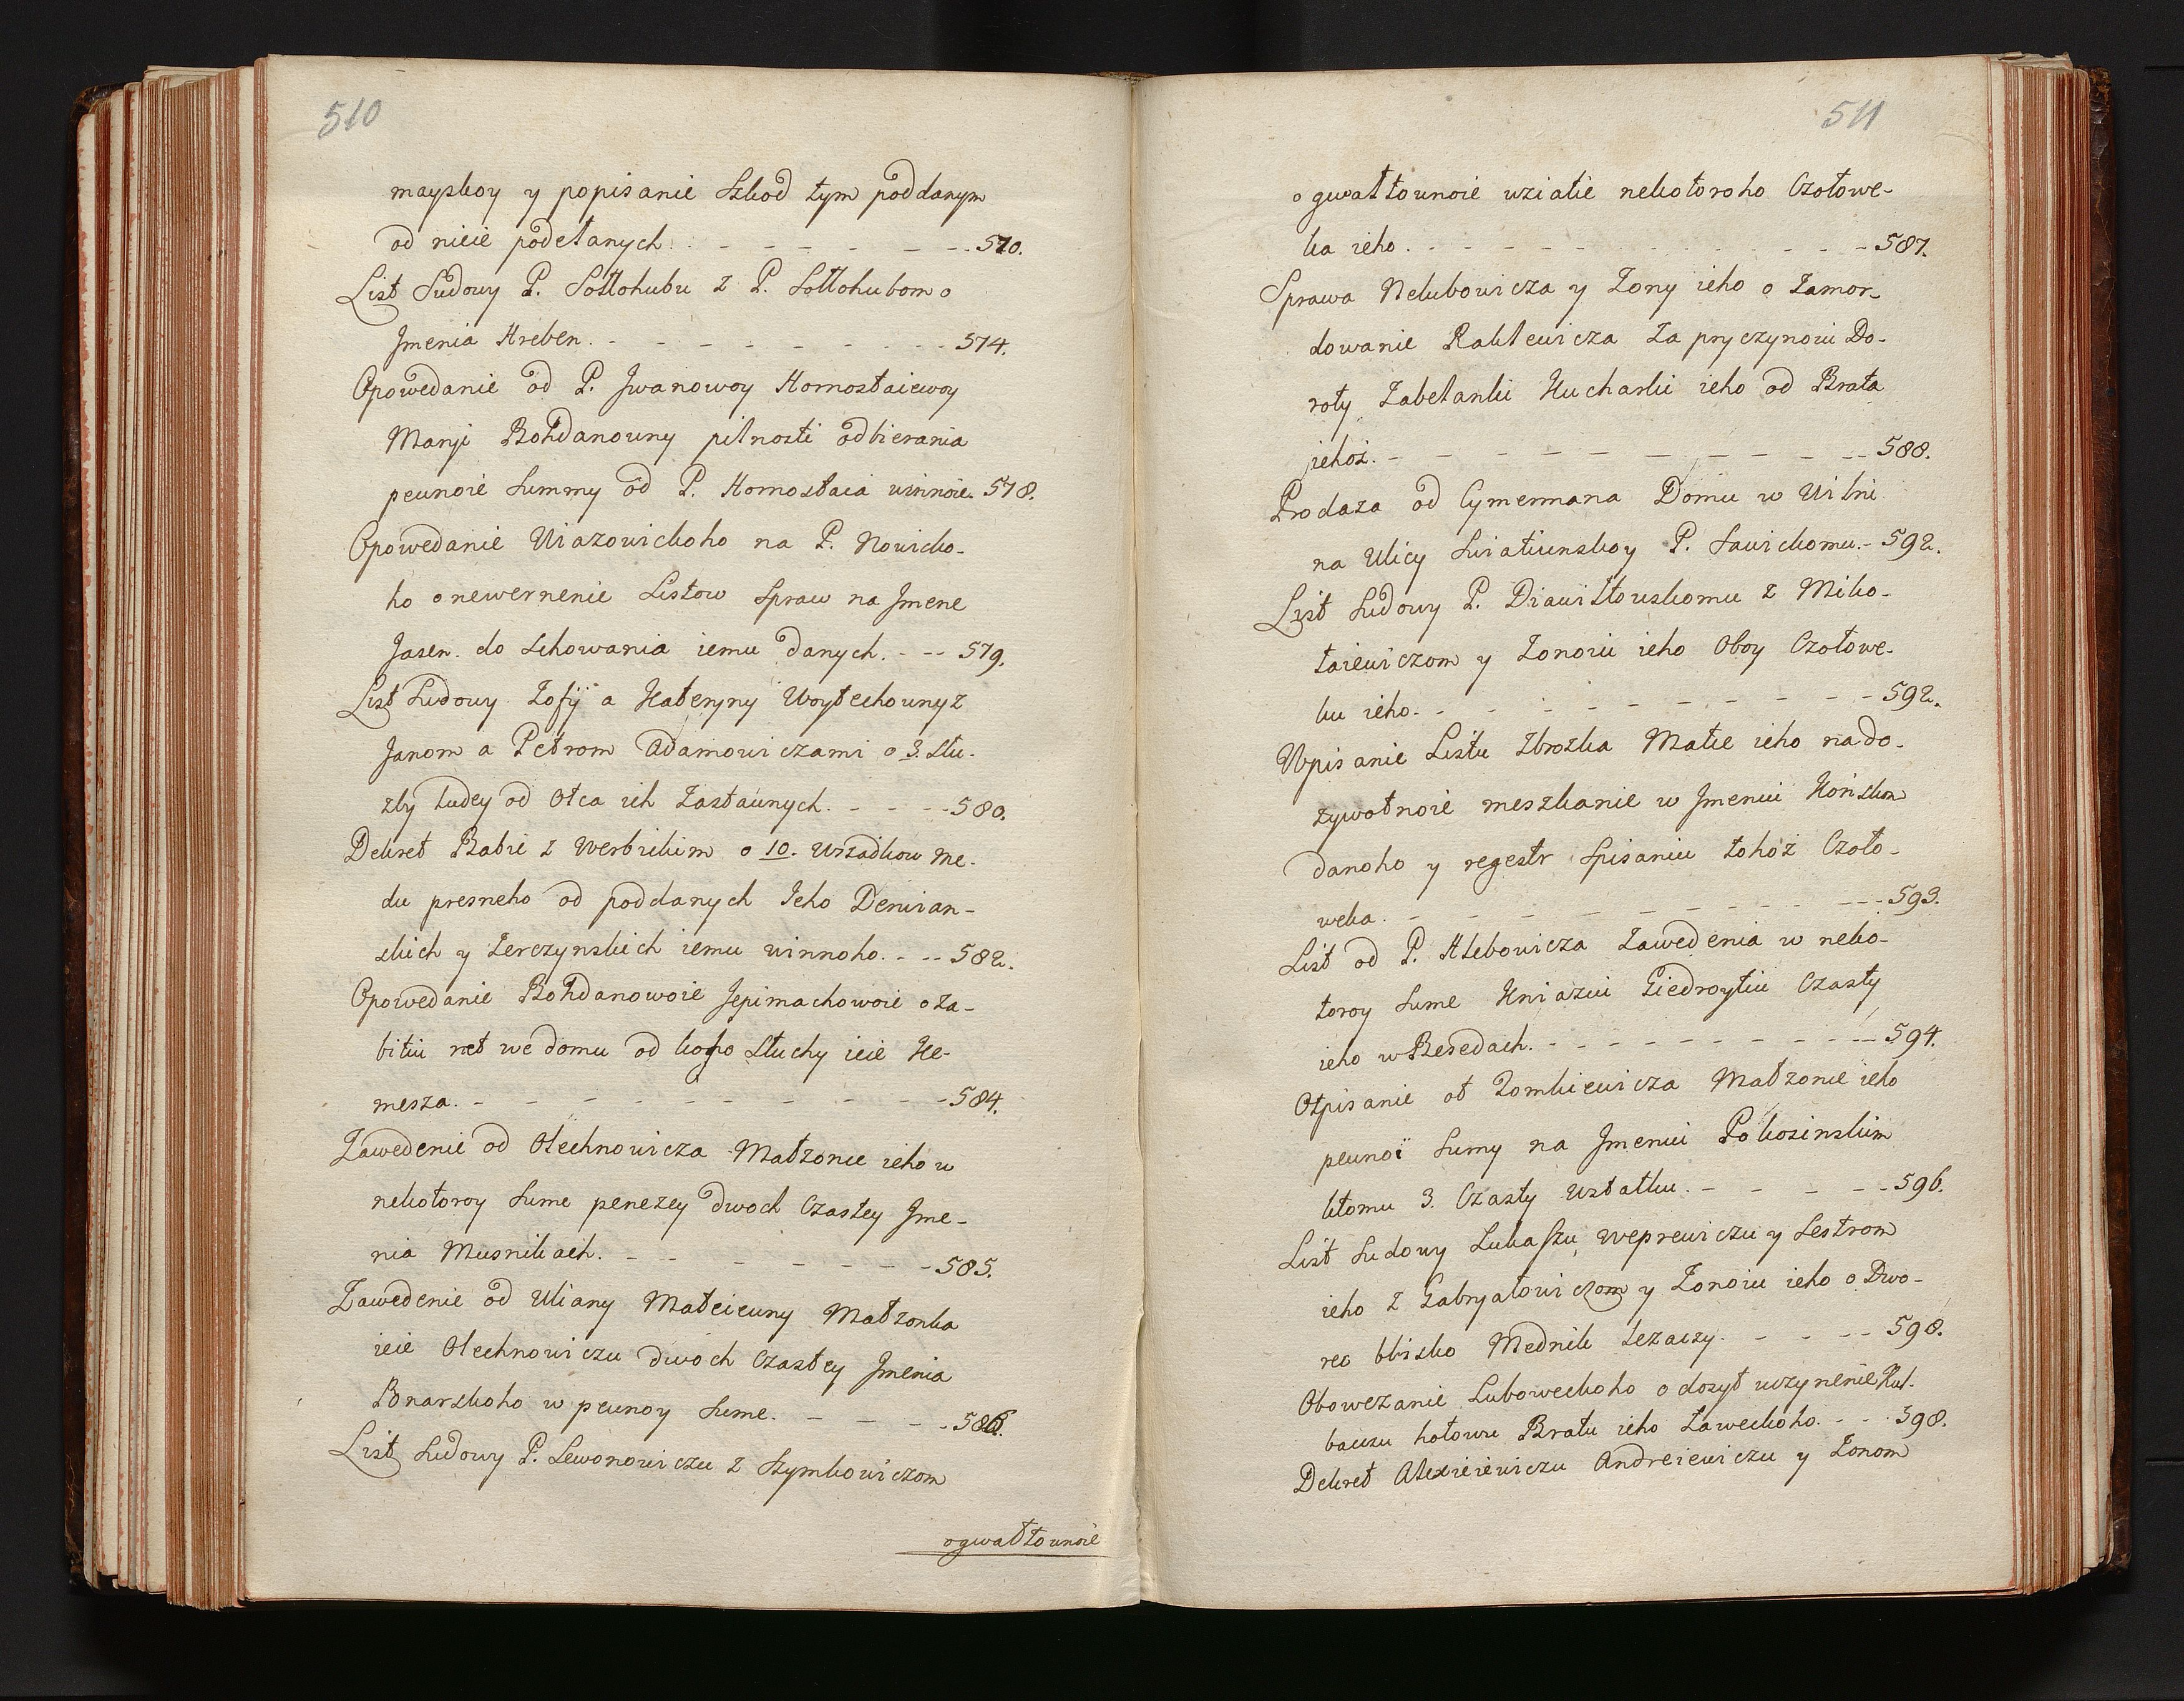 510
mayskoy y popisanie Szkod tym poddanym
od nieie podełanych. 570.
List Sudowy P. Sołłohubu z P. Sołłohubom o
Jmenia Hreben. 574.
Opowedanie od P. Jwanowoy Hornostaiewoy
Maryi Bohdanowny pilnosti odbierania
pewnoie Summy od P. Hornostaia winnoie. 578.
Opowedanie Wiazowickoho na P. Nowicko-
ho o newernenie Listow Spraw na Jmene
Jasen. do schowania iemu danych. 579.
List Sudowy Zofij a Kateryny Woytechowny z
Janom a Petrom Adamowiczami o 3. Słu-
zby Ludey od Otca ich Zastawnych. 580.
Dekret Babie z Werbickim o 10. Urzadkow Me-
du presneho od poddanych Jeho Denisan-
skich y Zerczynskich iemu winnoho. 582.
Opowedanie Bohdanowoie Jepimachowoie o Za-
bitiu net we domu od koho Słuchy ieie Ke-
mesza. 584.
Zawedenie od Olechnowicza Małzonce ieho w
nekotoroy Sume penezey dwoch Czastey Jme-
nia Musnikach. 585.
Zawedenie od Uliany Mateiewny Małzonka
ieie Olechnowiczu dwoch Czastey Jmenia
Ponarskoho w pewnoy Sume. 586.
List Sudowy P. Lewonowiczu z Szymkowiczom
o gwałtownoie
511
o gwałtownoie wziatie nekotoroho Czołowe-
ka ieho. 587.
Sprawa Nelubowicza y Zony ieho o Zamor-
dowanie Raktewicza Za pryczynoiu Do-
roty Zabelanki Kucharki ieho od Brata
iehoż. 588.
Prodaza od Cymermana Domu w Wilni
na Ulicy Swiatiunskoy P. Sawickomu. 592.
List Sudowy P. Diawiłtowskomu z Miko-
łaiewiczom y Zonoiu ieho Oboy Czołowe-
ku ieho. 592.
Wpisanie Listu Zbroska Matce ieho na do-
zywotnoie meszkanie w Jmeniu Końskom
danoho y regestr spisaniu tohoż Czoło-
weka. 593.
List od P. Hlebowicza Zawedenia w neko-
toroy Sume Kniaziu Giedroytiu Czasty
ieho w Besedach. 594.
Otpisanie ot Zomkiewicza Małzonce ieho
pewnoi Sumy na Jmeniu Pokosinskim
ktomu 3. Czasty Ustatku. 596.
List Sudowy Lukaszu Weprewiczu y Sestrom
ieho z Gabryałowiczom y Zonoiu ieho o Dwo-
rec blisko Mednik Lezaczy. 598.
Obowezanie Luboweckoho o dosyt uczynenie Kul-
baczu hotowu Bratu ieho Zaweckoho. 598.
Dekret Alexieiewiczu Andreiewiczu y Zonom